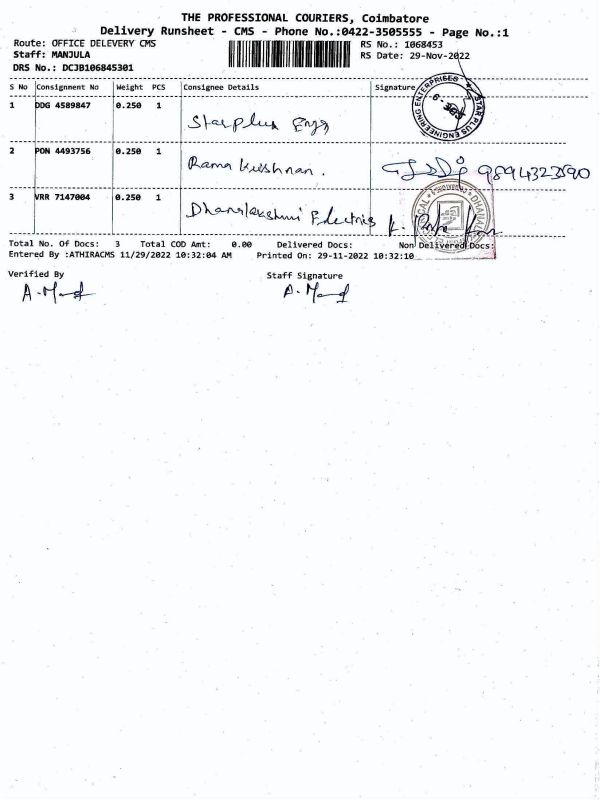 THE PROFESSIONAL COURIERS, Coimbatore
Delivery Runsheet - CMS - Phone No.:0422-3505555 - Page No.:1
Route: OFFICE DELEVERY CMS
Staff: MANJULA
DRS No.: DCJB106845301
RS No.: 1068453
RS Date: 29-Nov-2022
S No Consignment No Weight PCS Consignee Details Signature
1 DDG 4589847 0.250 1 Starplus Engg
STAR PLUS ENGINEERING ENTERPRISES
2 PON 4493756 0.250 1 Rama Krishnan.
3 VRR 7147004 0.250 1 Dhanalakshmi Electrics
Total No. Of Docs: 3 Total COD Amt: 0.00 Delivered Docs: Non Delivered Docs:
Entered By :ATHIRACMS 11/29/2022 10:32:04 AM Printed On: 29-11-2022 10:32:10
Verified By Staff Signature